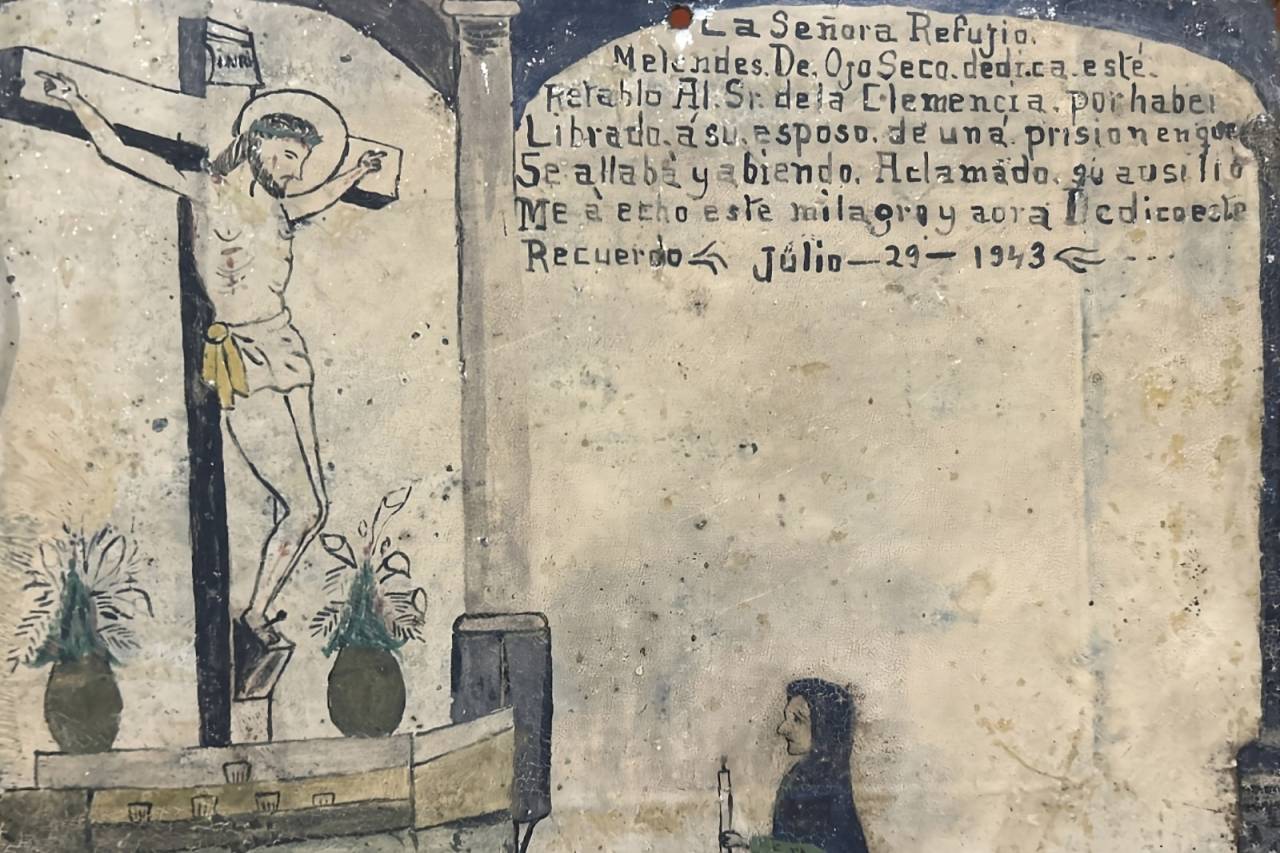 INRI
La Señora Refujio.
Melendes. De. Ojo Seco. dedi.ca. esté.
Retablo Al. Sr. dela Clemencia. por haber
Librado. á su. esposo. de una. prision en que
Se allaba y abiendo. Aclamado. su ausilio
Me à echo este milagro y aora Dedico este
Recuerdo Júlio—29— 1943